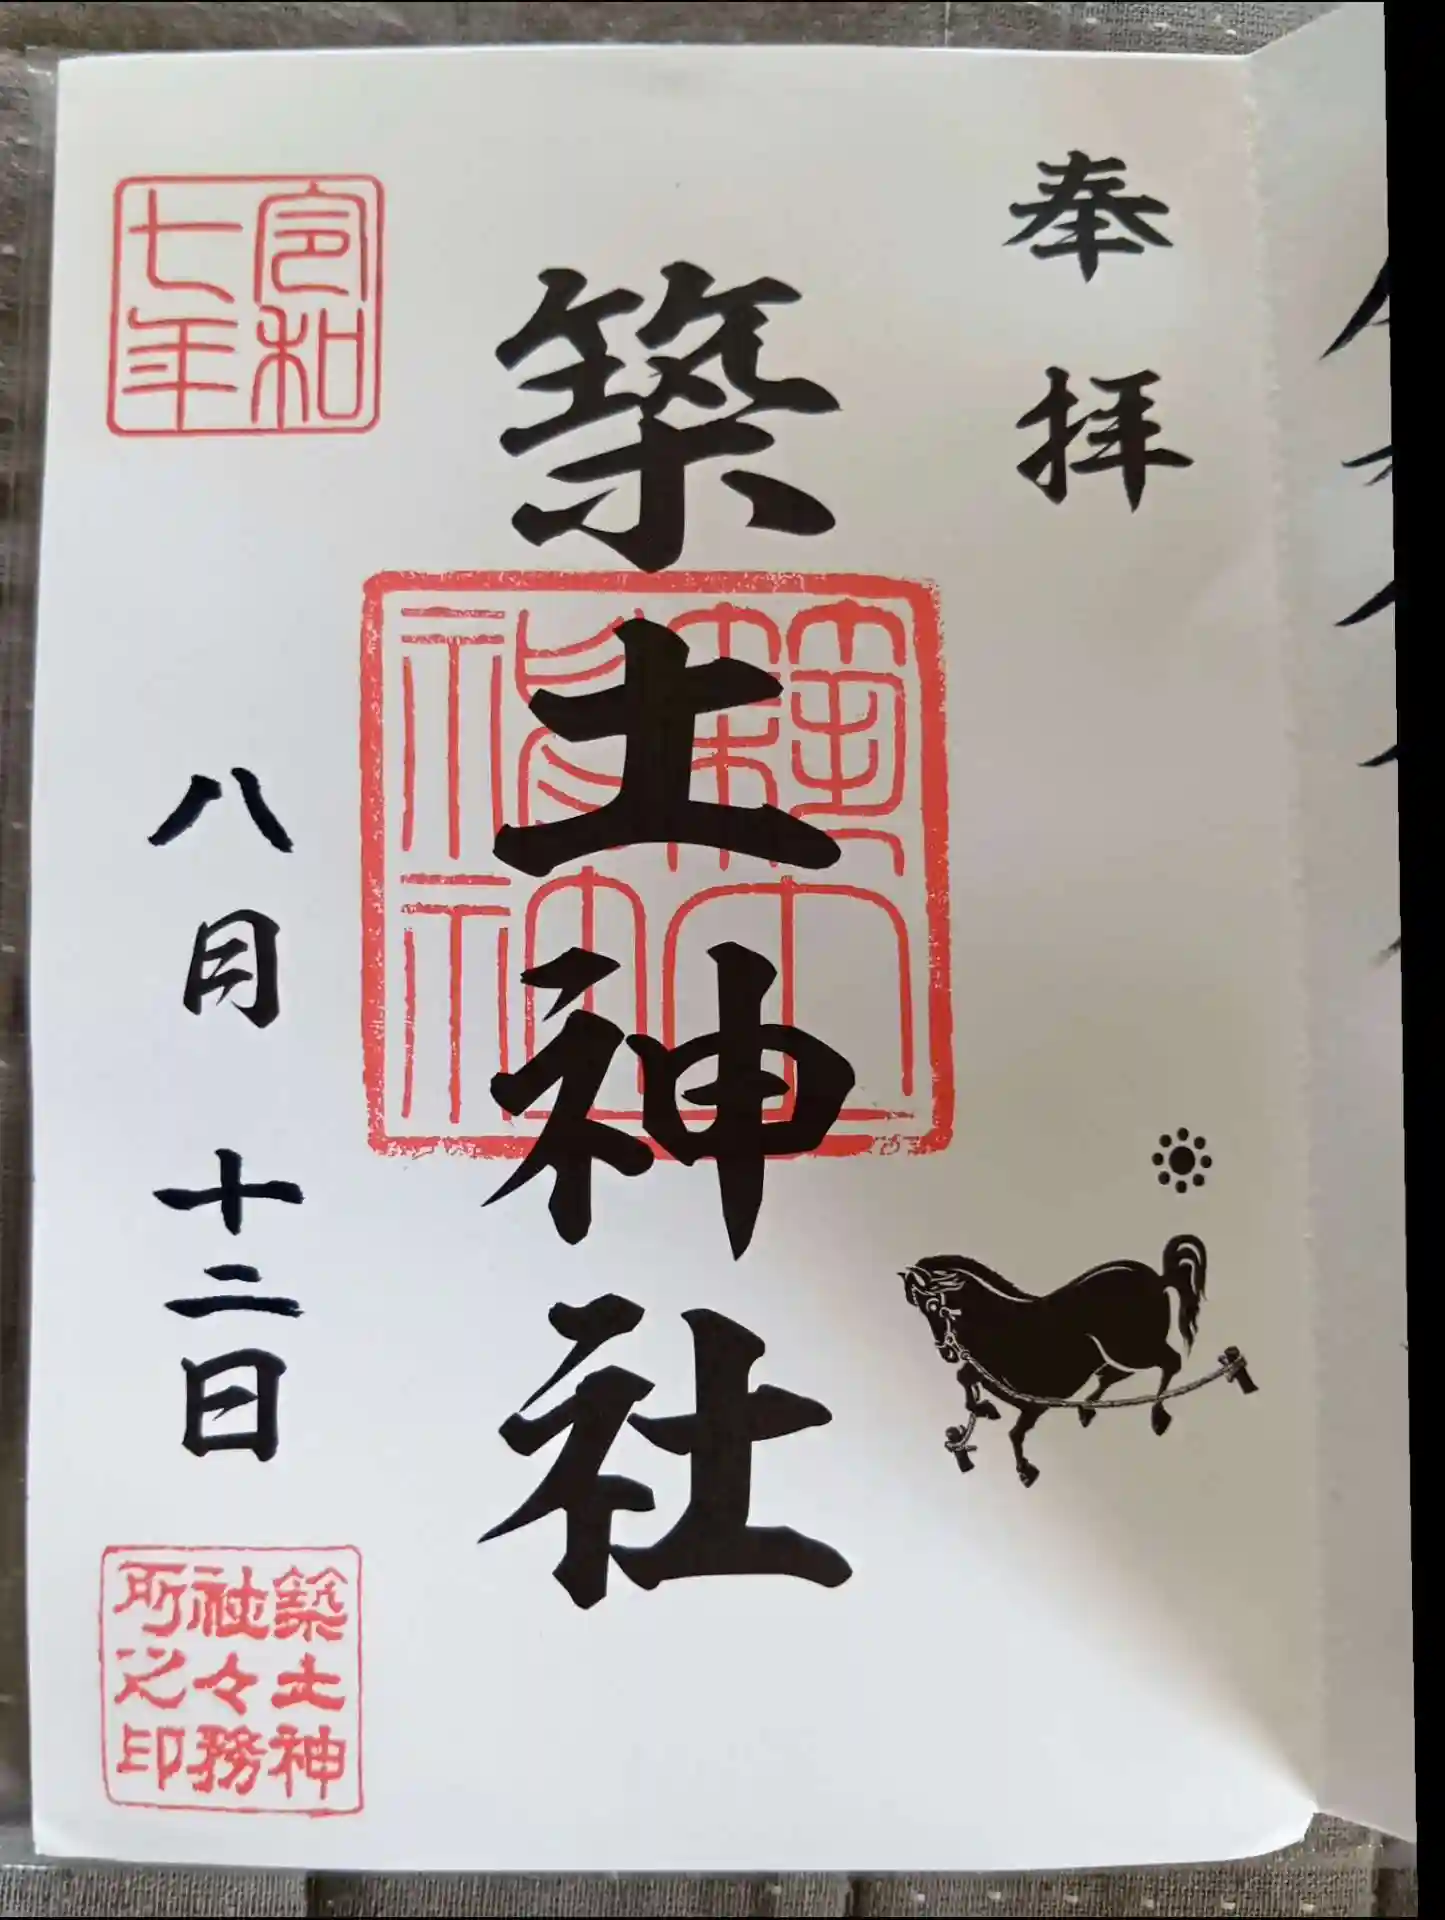 奉拝
築土神社
令和
七年
八月十二日
築土神
社々務
所之印
築土
神社